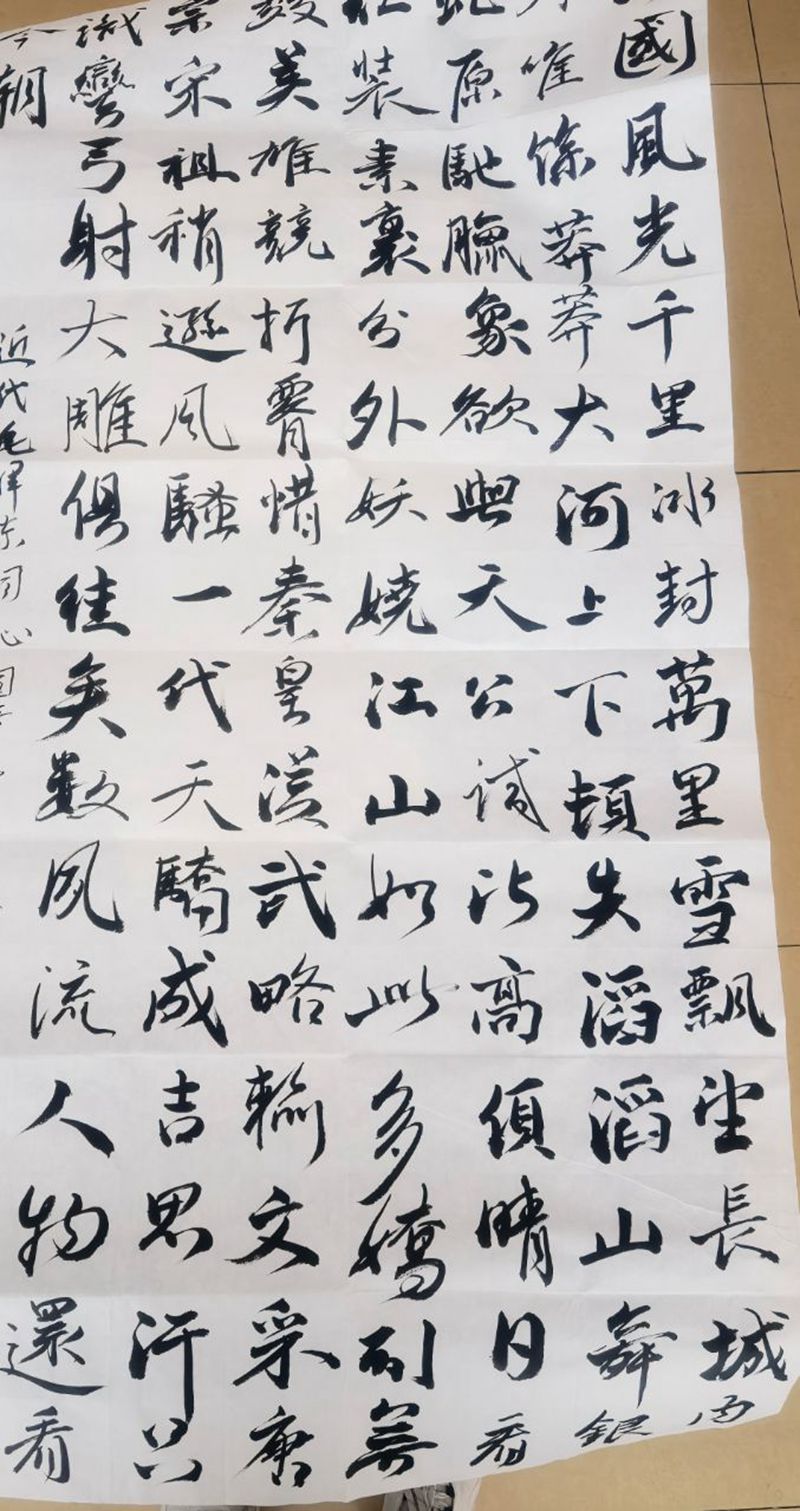 國風光千里冰封萬里雪飄望長城内
唯餘莽莽大河上下頓失滔滔山舞銀
蛇原馳臘象欲與天公試比高須晴日看
紅裝素裹分外妖嬈江山如此多嬌引無
數英雄競折腰惜秦皇漢武略輸文采唐
宗宋祖稍遜风騷一代天驕成吉思汗只
識彎弓射大雕俱往矣數风流人物還看
今朝
近代毛泽东词心园